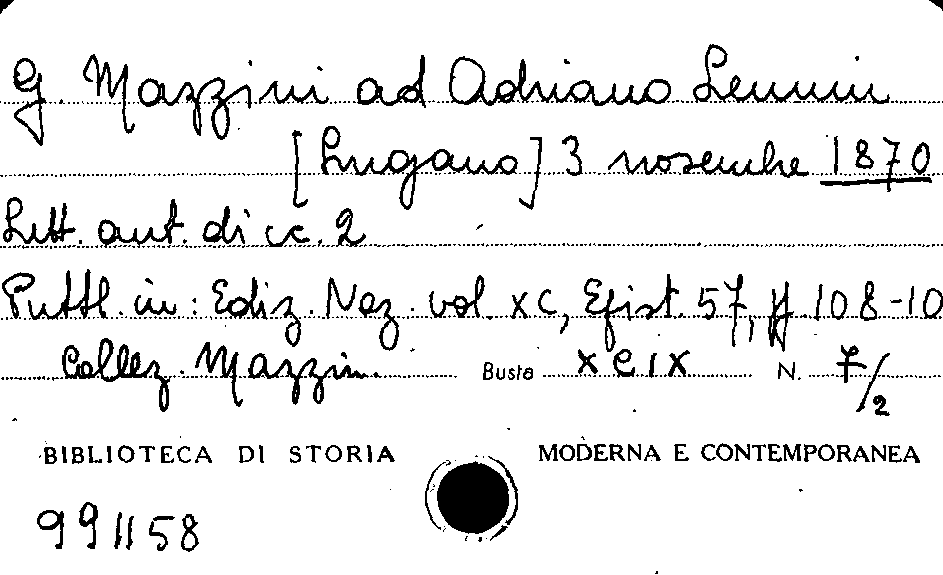 G. Mazzini ad Adriano Lemmi
[Lugano] 3 novembre 1870
Lett. aut. di cc. 2
Pubbl. in: Ediz. Naz. vol XC, Epist. 57, pp. 108-10
Collez. Mazzini. Busta XCIX N. 7/2
BIBLIOTECA DI STORIA MODERNA E CONTEMPORANEA
991158